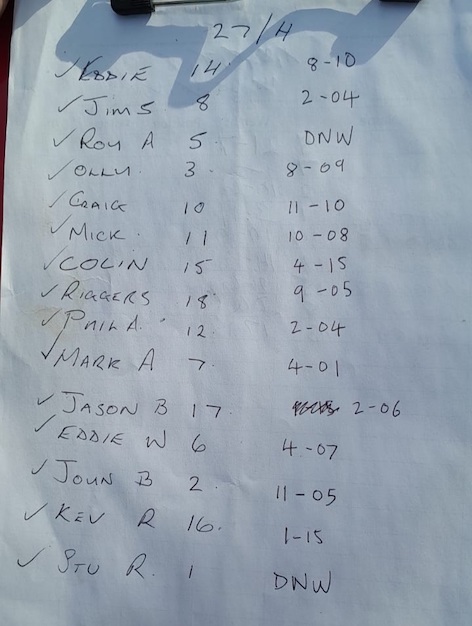 27/4
✓ EDDIE 14 8-10
✓ Jim S 8 2-04
✓ Roy A 5 DNW
✓ OLLY 3 8-09
✓ CRAIG 10 11-10
✓ MICK 11 10-08
✓ COLIN 15 4-15
✓ RIGGERS 18 9-05
✓ PHIL A 12 2-04
✓ MARK A 7 4-01
✓ JASON B 17 2-06
✓ EDDIE W 6 4-07
✓ JOHN B 2 11-05
✓ KEV R 16 1-15
✓ STU R. 1 DNW